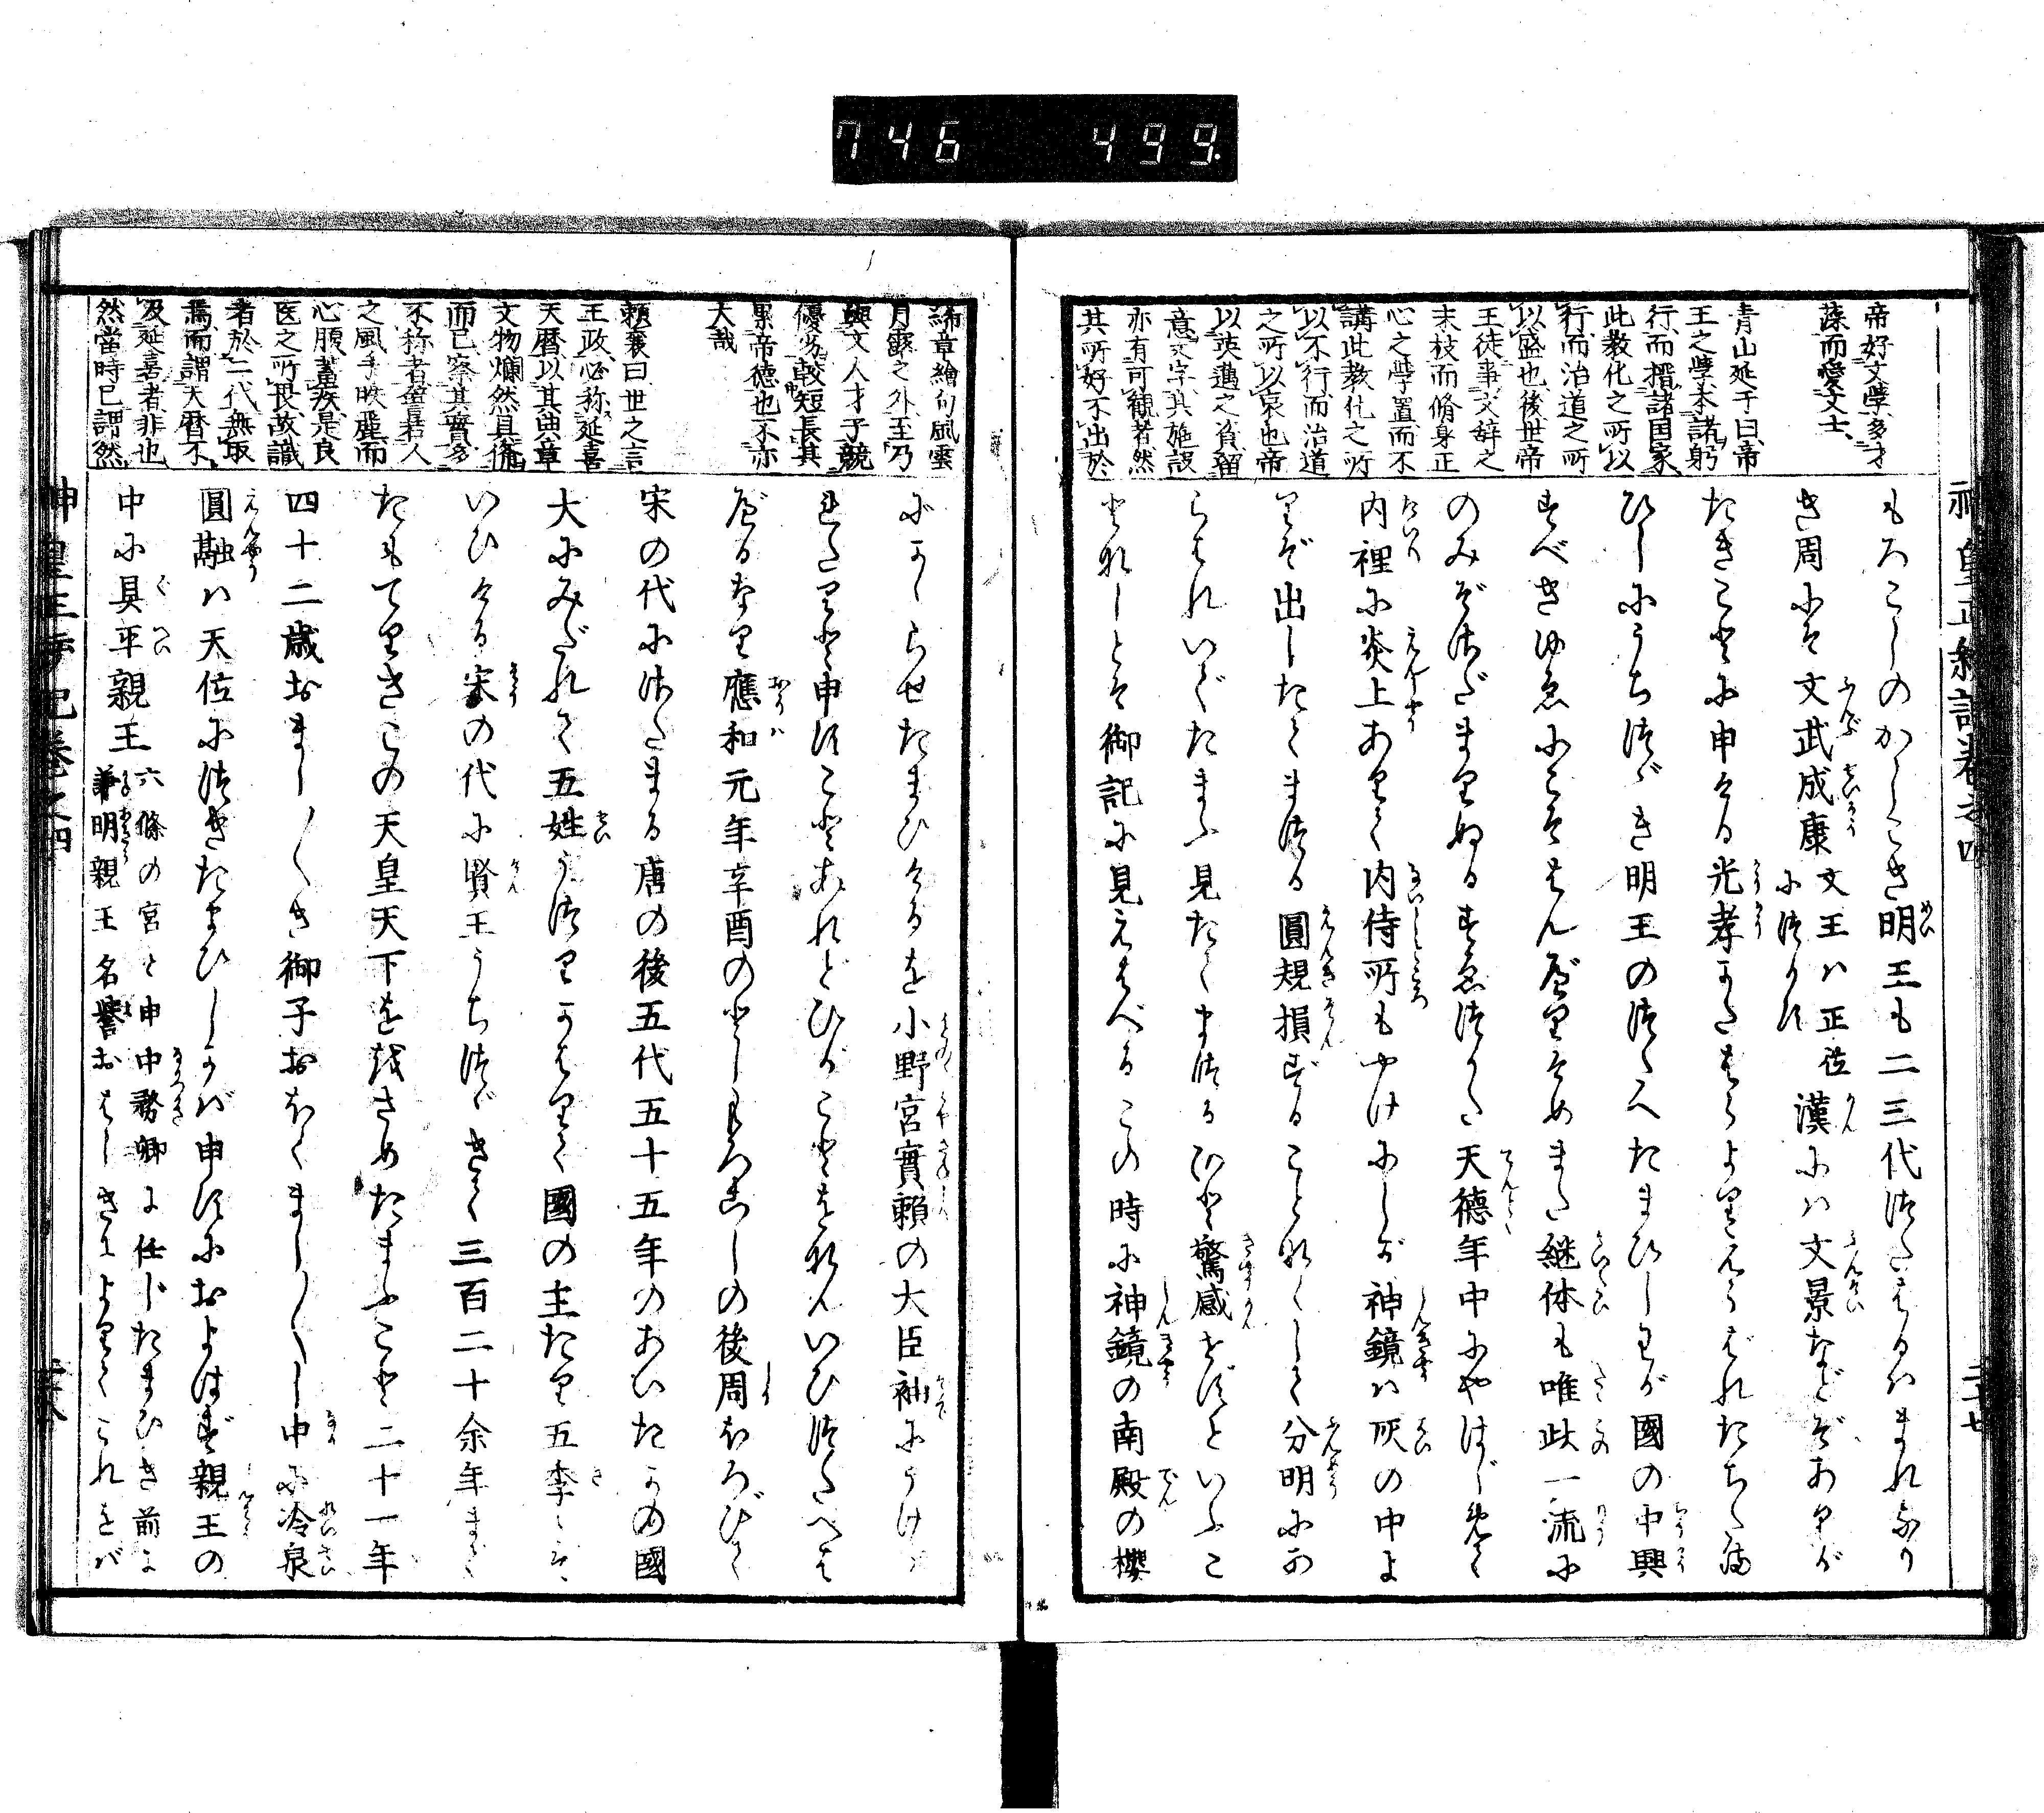 746 499.
神皇正統記巻之四
二十七
帝好文學多才
藻而愛文士
青山延于曰帝
王之學本諸躬
行而措諸国家
此教化之所以
行而治道之所
以盛也後世帝
王徒事文辞之
末枝而脩身正
心之學置而不
講此教化之所
以不行而治道
之所以衰也帝
以英邁之資留
意文字其施設
亦有可観者然
其所好不出於
もろこしのかしこき明王も二三代つたはるはまれなり
き周にそ文武成康文王ハ正位につかす漢にハ文景などぞありが
たきことに申ける光孝かたはらよりえらばれたちたま
ひしにうちつゞき明王のつたへたまひしわが國の中興
すべきゆゑにこそはんべりそめまた継体も唯此一流に
のみぞさだまりぬるすゑつかた天徳年中にやはじめて
内裡に炎上ありて内侍所もやけにしが神鏡ハ灰の中よ
りぞ出したてまつる圓規損ずることなくして分明にあ
らはれいでたまふ見たてまつるひと驚感せずといふこ
となしとそ御記に見えはべるこの時に神鏡の南殿の櫻
絺章繪句風雲
月露之外至乃
與文人才子競
優劣較短長其
累帝徳也不亦
大哉
頼襄曰世之言
王政必称延喜
天暦以其典章
文物爛然具備
而已察其實多
不称者嘗君人
之風手暌罷而
心腹蓄疾是良
医之所畏故識
者於二代無取
焉而謂天暦不
及延喜者非也
然當時已謂然
にかゝらせたまひけるを小野宮實頼の大臣袖にうけ
られたりと申すことあれどひがことをなんいひつたへは
べるなり應和元年辛酉のとしもろこしの後周ほろびて
宋の代にさたまる唐の後五代五十五年のあいたかの國
大にみだれて五姓うつりかはりて國の主たり五季とぞ
いひける宋の代に賢王うちつゞきて三百二十余年まで
たもてりきこの天皇天下を践さめたまふこと二十一年
四十二歳おまし〱き御子おほくまし〱し中に冷泉
圓融ハ天位につきたまひしかば申すにおよはず親王の
中に具平親王六條の宮と申中務卿に任じたまひき前に兼明親王名譽おはしきによりてこれをバ
神皇正統記巻之四
二十八